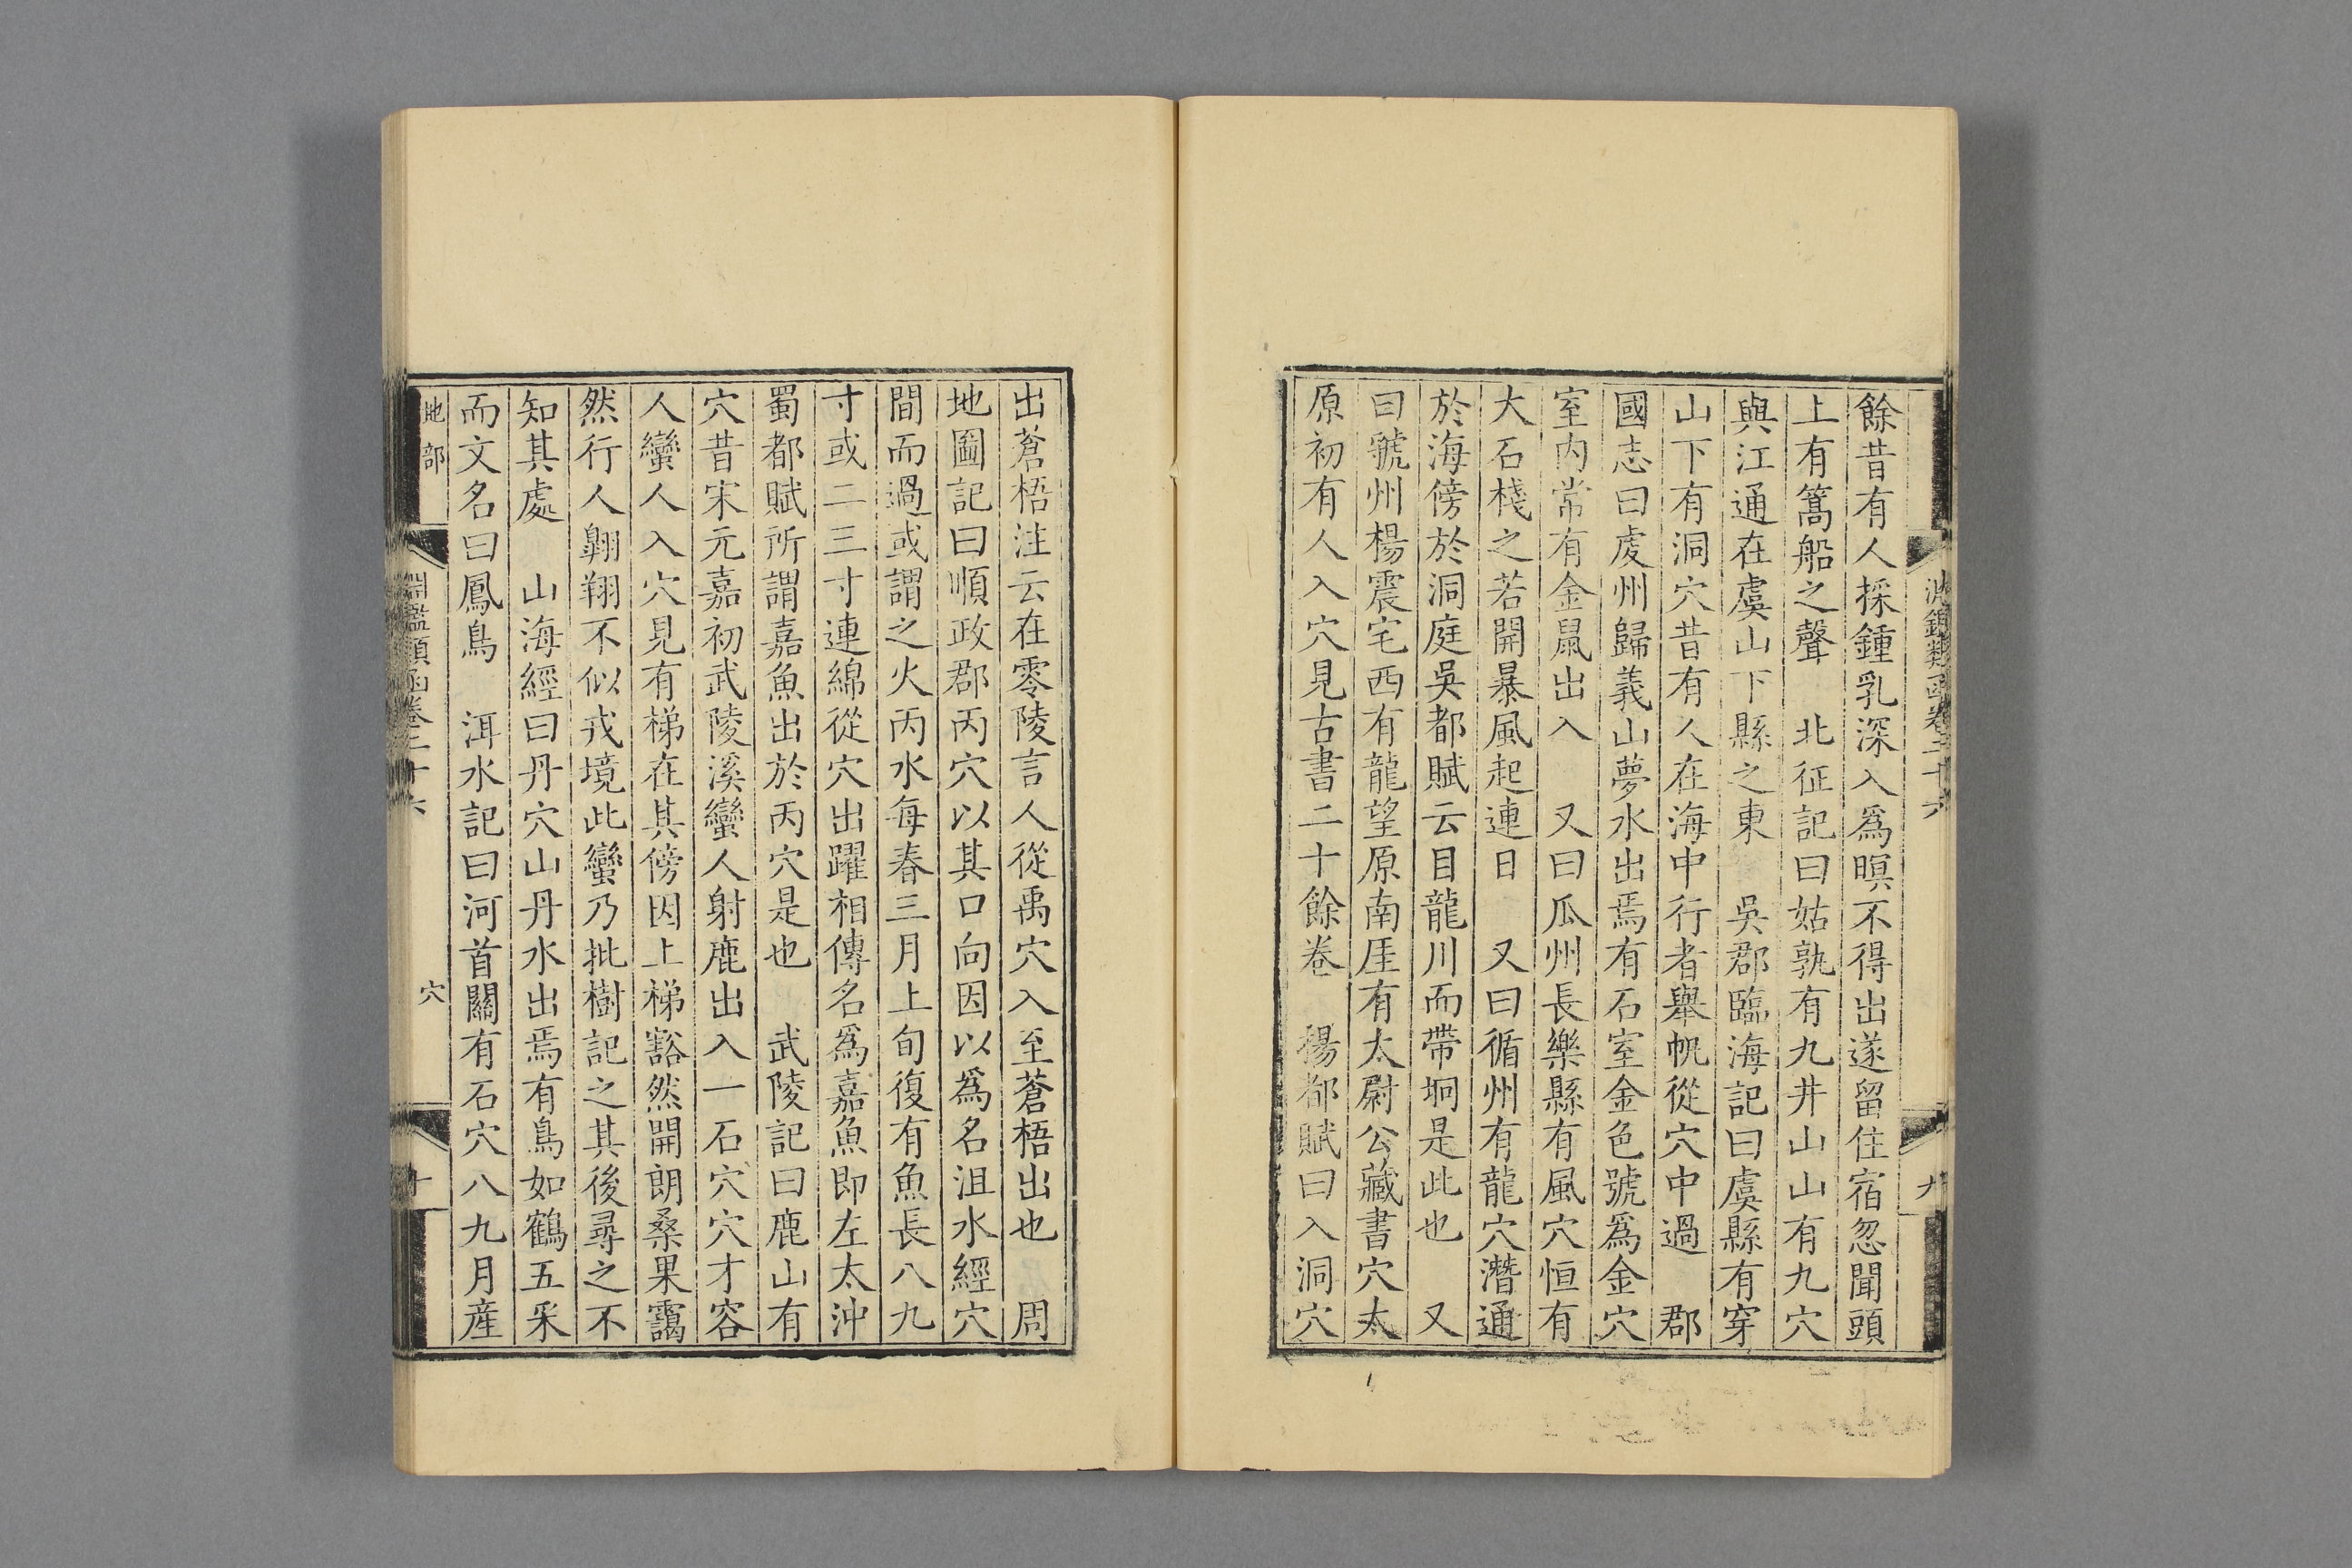 淵鑑類函卷二十六
九
餘昔有人採鍾乳深入爲暝不得出遂留住宿忽聞頭
上有篙船之聲　北征記曰姑孰有九井山山有九穴
與江通在虞山下縣之東　吳郡臨海記曰虞縣有穿
山下有洞穴昔有人在海中行者舉帆從穴中過　郡
國志曰虔州歸義山夢水出焉有石室金色號爲金穴
室内常有金鼠出入　又曰瓜州長樂縣有風穴恒有
大石棧之若開暴風起連日　又曰循州有龍穴潛通
於海傍於洞庭吳都賦云目龍川而帶坰是此也　又
曰虢州楊震宅西有龍望原南厓有太尉公藏書穴太
原初有人入穴見古書二十餘卷　楊都賦曰入洞穴
出蒼梧注云在零陵言人從禹穴入至蒼梧出也　周
地圖記曰順政郡丙穴以其口向因以爲名沮水經穴
間而過或謂之火丙水每春三月上旬復有魚長八九
寸或二三寸連綿從穴出躍相傳名爲嘉魚即左太沖
蜀都賦所謂嘉魚出於丙穴是也　武陵記曰鹿山有
穴昔宋元嘉初武陵溪蠻人射鹿出入一石穴穴才容
人蠻人入穴見有梯在其傍因上梯豁然開朗桑果靄
然行人翺翔不似戎境此蠻乃批樹記之其後尋之不
知其處　山海經曰丹穴山丹水出焉有鳥如鶴五采
而文名曰鳳鳥　洱水記曰河首關有石穴八九月産
地部
淵鑑類函卷二十六
穴
十